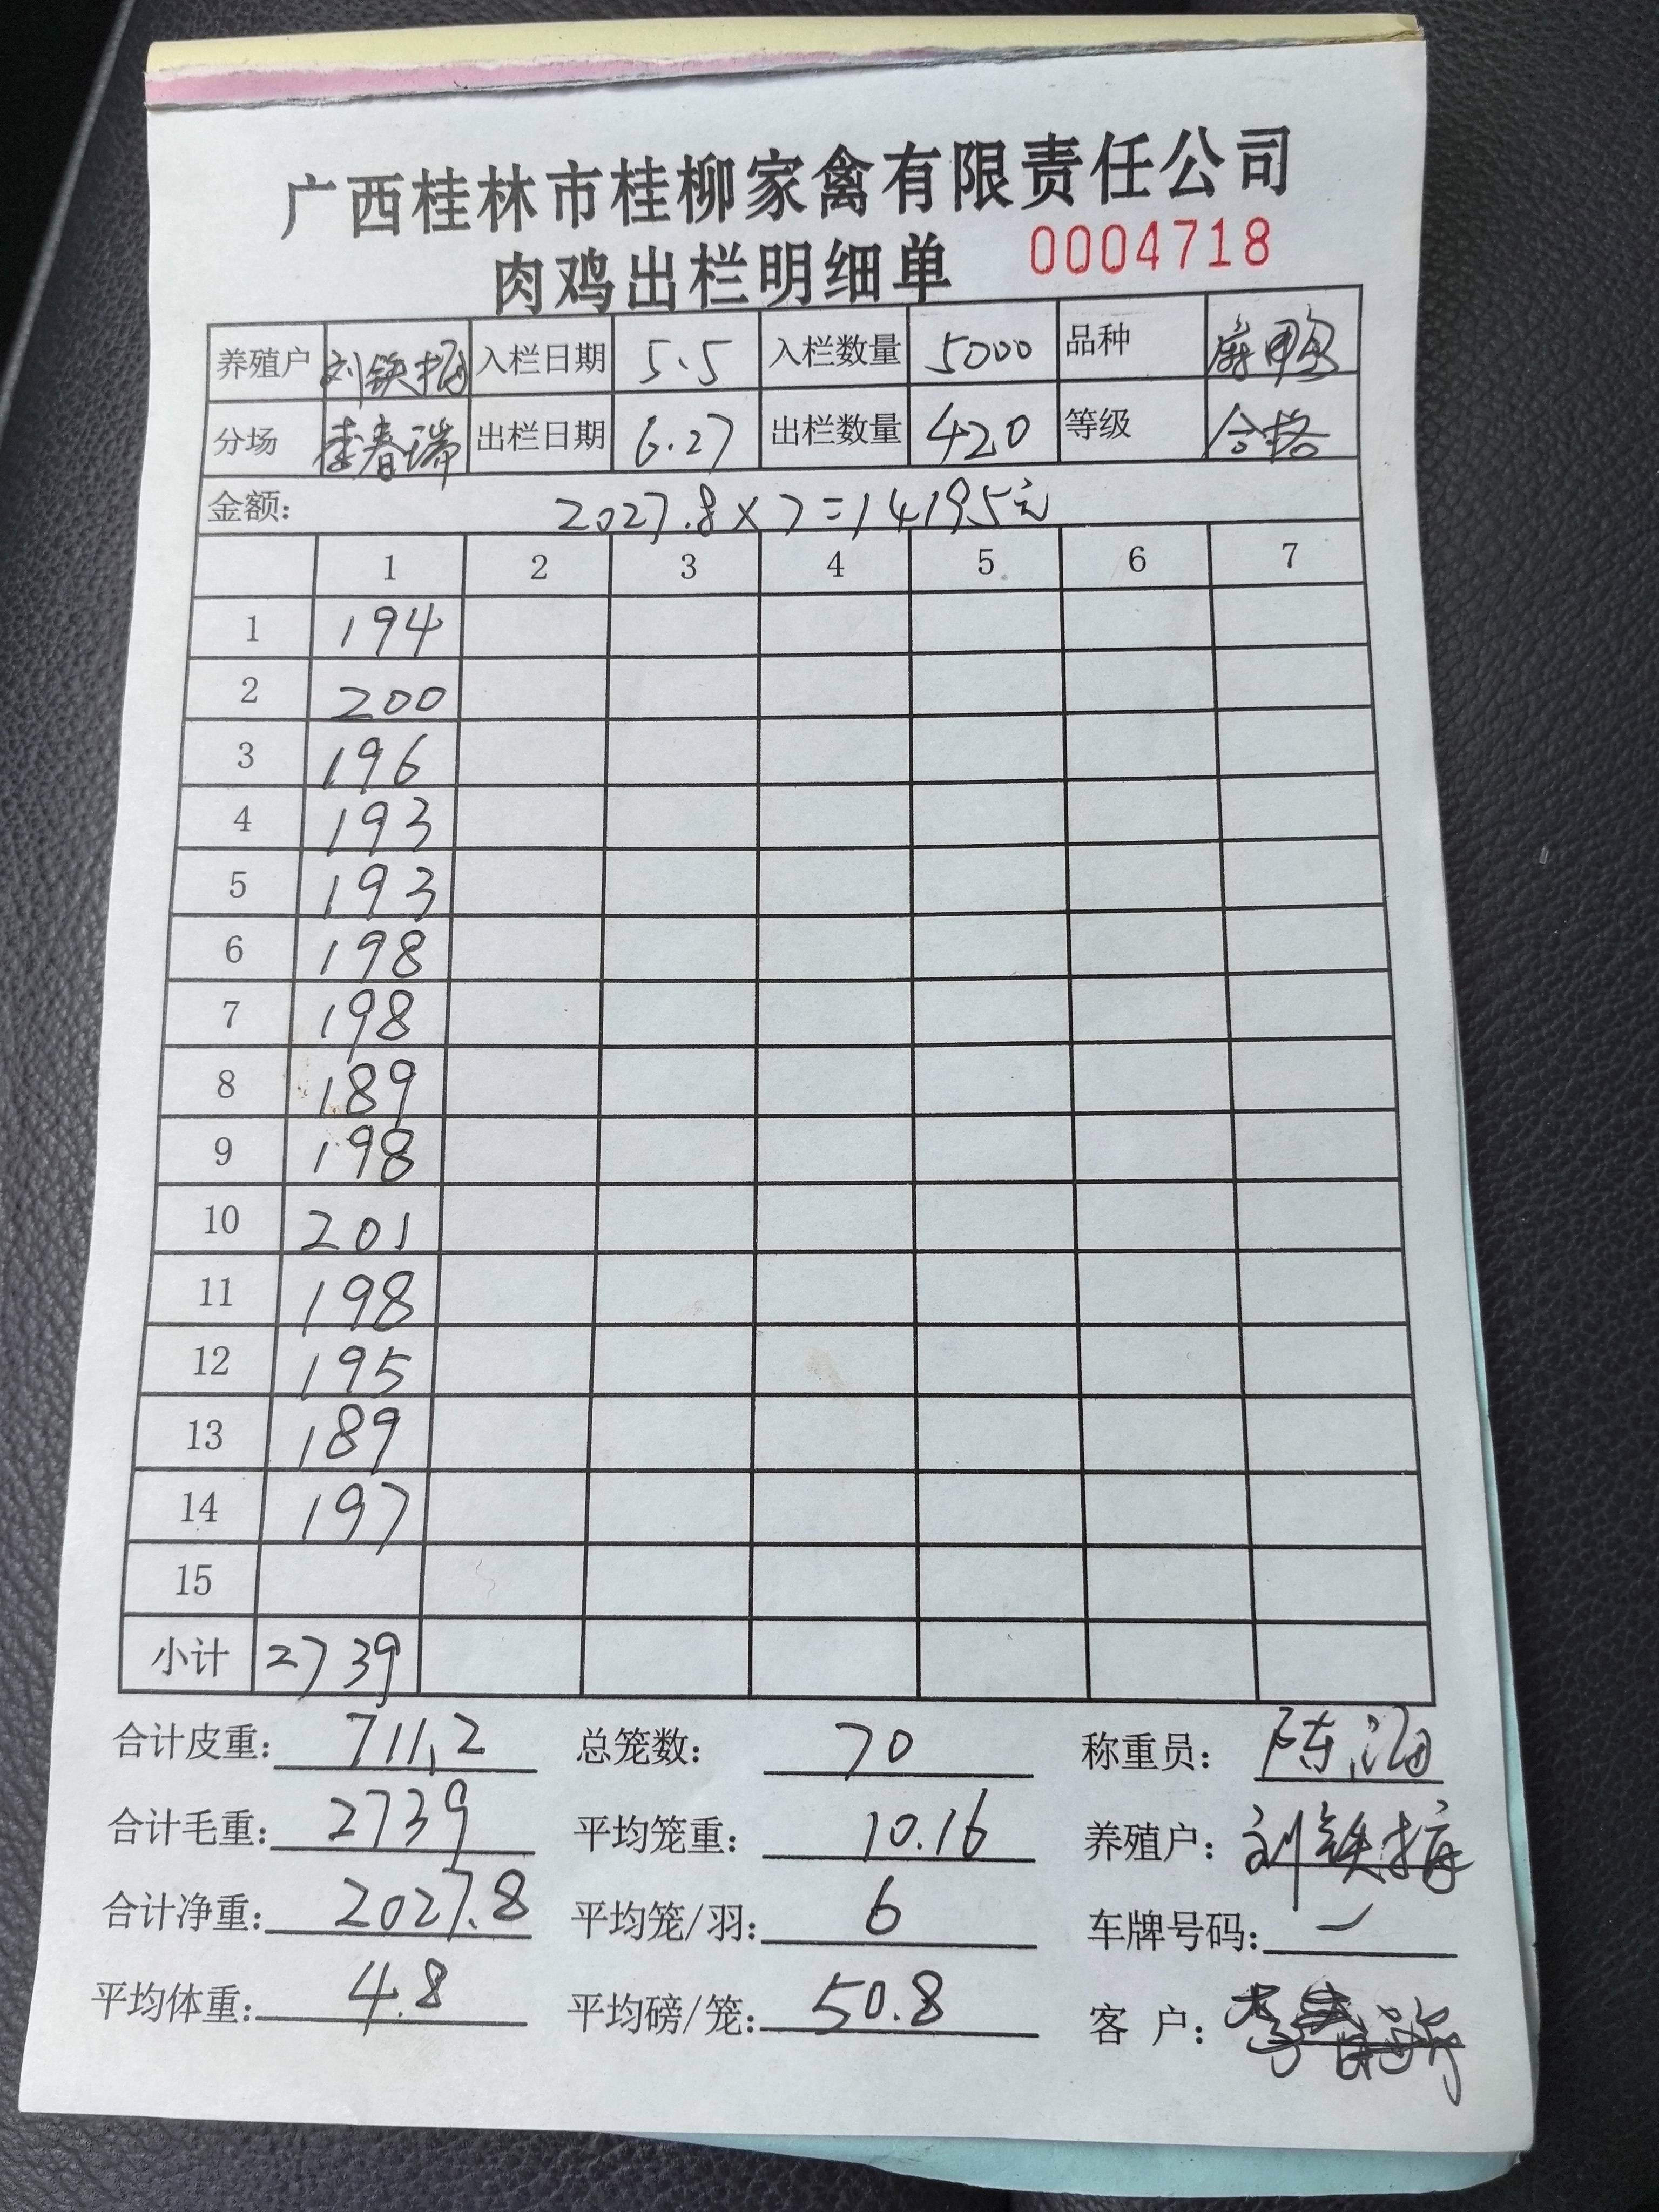 广西桂林市桂柳家禽有限责任公司
肉鸡出栏明细单 0004718
养殖户 刘铁梅 入栏日期 5.5 入栏数量 5000 品种 麻鸭
分场 李春瑞 出栏日期 6.27 出栏数量 420 等级 合格
金额: 2027.8×7=14195元
1 2 3 4 5 6 7
1 194
2 200
3 196
4 193
5 193
6 198
7 198
8 189
9 198
10 201
11 198
12 195
13 189
14 197
15
小计 2739
合计皮重: 711.2 总笼数: 70 称重员: 陈海
合计毛重: 2739 平均笼重: 10.16 养殖户: 刘铁梅
合计净重: 2027.8 平均笼/羽: 6 车牌号码: 一
平均体重: 4.8 平均磅/笼: 50.8 客 户: